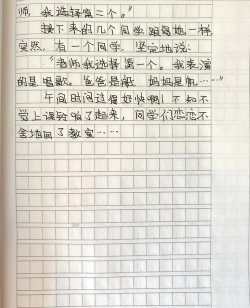 师,我选择第二个。"
接下来的几个同学跟着她一样
突然,有一个同学,坚定地说:
"老师我选择第一个。我表演
的是唱歌。爸爸是船 妈妈是帆……"
午间时间过得好快啊!不知不
觉上课铃响了起来,同学们恋恋不
舍地回了教室……